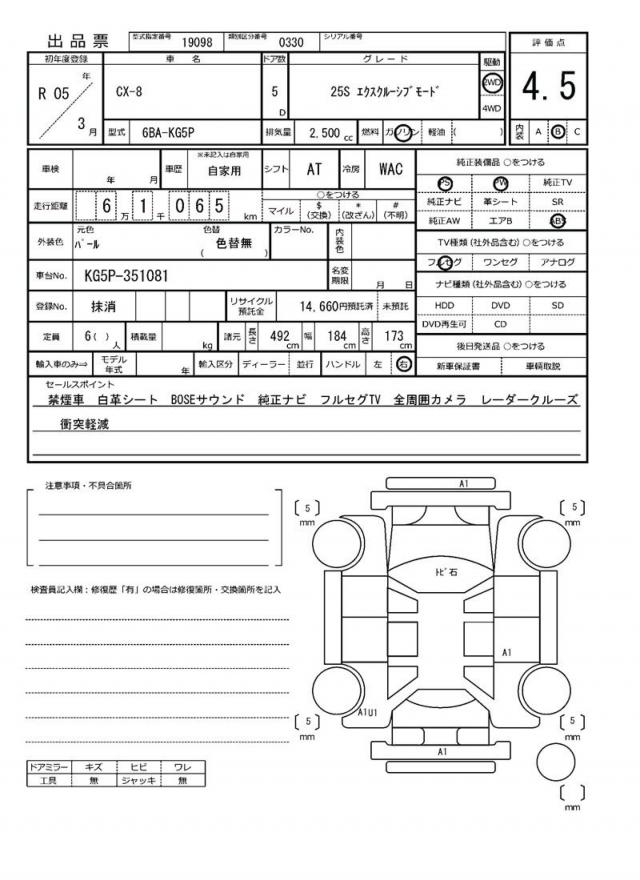 出品票 型式指定番号 19098 類別区分番号 0330 シリアル番号
初年度登録 車名 ドア数 グレード 駆動 評価点
R 05 年 3 月 CX-8 5 D 25S エクスクルーシブモード 2WD 4WD 4.5
型式 6BA-KG5P 排気量 2,500 cc 燃料 ガソリン 軽油 ( ) 内装 A B C
車検 年 月 車歴 ※未記入は自家用 自家用 シフト AT 冷房 WAC
走行距離 6 万 1 千 0 6 5 km ○をつける マイル $ (交換) * (改ざん) # (不明)
外装色 元色 パール 色替 ( 色替無 ) カラーNo. 内装色
車台No. KG5P-351081 名変期限 月 日
登録No. 抹消 リサイクル預託金 14,660円預託済 未預託
定員 6( ) 人 積載量 kg 諸元 長さ 492 cm 幅 184 cm 高さ 173 cm
輸入車のみ⇒ モデル年式 年 輸入区分 ディーラー 並行 ハンドル 左 右
純正装備品 ○をつける
PS PW 純正TV
純正ナビ 革シート SR
純正AW エアB ABS
TV種類 (社外品含む) ○をつける
フルセグ ワンセグ アナログ
ナビ種類 (社外品含む) ○をつける
HDD DVD SD
DVD再生可 CD
後日発送品 ○をつける
新車保証書 車輌取説
セールスポイント
禁煙車 白革シート BOSEサウンド 純正ナビ フルセグTV 全周囲カメラ レーダークルーズ
衝突軽減
注意事項・不具合箇所
検査員記入欄：修復歴「有」の場合は修復箇所・交換箇所を記入
A1
[ 5 ] mm
[ 5 ] mm
トビ石
A1
A1U1
[ 5 ] mm
[ 5 ] mm
A1
[ ] mm
ドアミラー キズ ヒビ ワレ
工具 無 ジャッキ 無